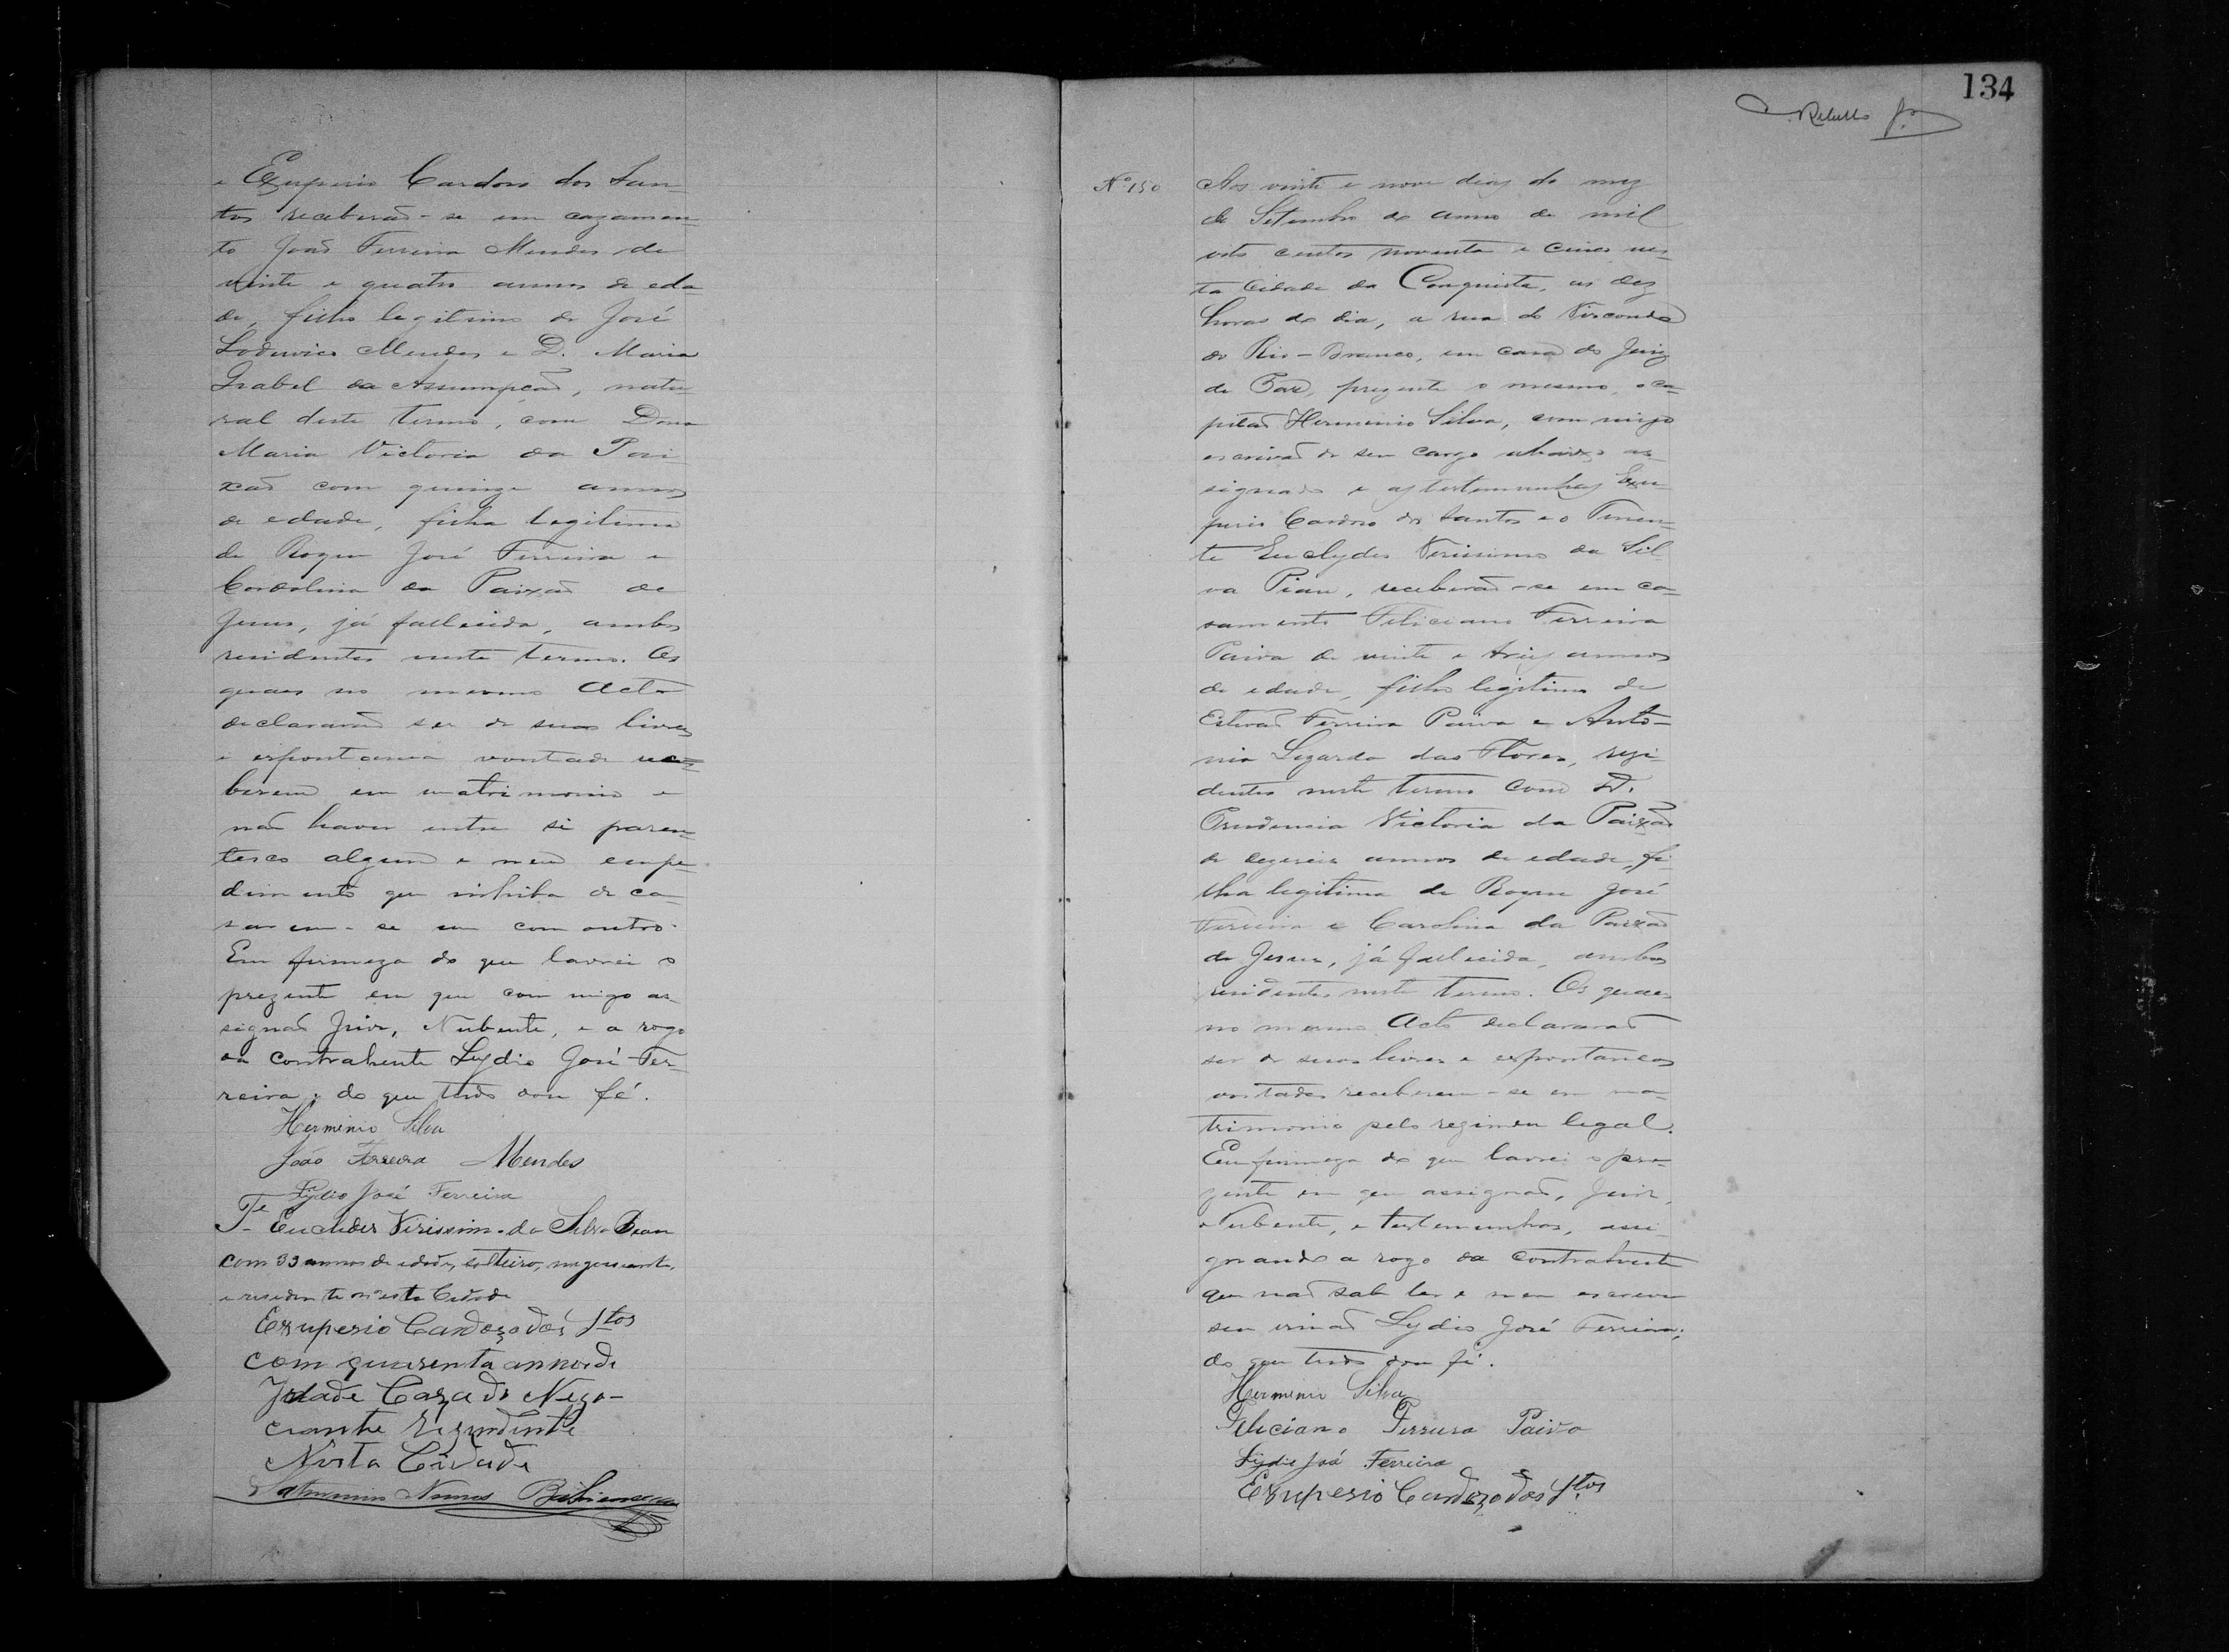 e Exuperio Cardoso dos San-
tos receberão-se em cazamen-
to João Ferreira Mendes de
vinte e quatro annos de eda-
de, filho legitimo de José
Lodovico Mendes e D. Maria
Izabel da Assumpção, natu-
ral deste termo, com Dona
Maria Victoria da Pai-
xão com quinze annos
de edade, filha legitima
de Roque José Ferreira e
Cordolina da Paixão de
Jesus, já fallecida, ambos
residentes neste termo. Os
quaes no mesmo Acto
declararão ser de suas livres
e espontanea vontade rece-
berem em matrimonio e
não haver entre si paren-
tesco algum e nem empe-
dimento que inhiba de ca-
sarem-se um com outro.
Em firmeza do que lavrei o
prezente em que commigo as-
signão Juiz, Nubente, e a rogo
da contrahente Lydio José Fer-
reira; do que tudo dou fé.
Herminio Silva
João Ferreira Mendes
Lydio José Ferreira
Te Euclides Virissimo da Silva Piau
com 33 annos de edade, solteiro, negociante,
e residente n'esta Cidade
Exuperio Cardozo dos Stos
com quarenta annos de
Idade Cazado Nego-
ciante Rezindente
Nesta Cidade
Saturnino Nunes
134
Rebello Jr
Nº 150
Aos vinte e nove dias do mez
de Setembro do anno de mil
oito centos noventa e cinco nes-
ta Cidade da Conquista, as dez
horas do dia, a rua do Visconde
do Rio-Branco, em casa do Juiz
de Paz, prezente o mesmo, o ca-
pitão Herminio Silva, commigo
escrivão de seu cargo abaixo as-
signado e as testemunhas Exu-
perio Cardoso dos Santos e o Tenen-
te Euclydes Verissimo da Sil-
va Piau, receberão-se em ca-
samento Feliciano Ferreira
Paiva de vinte e treis annos
de edade, filho legitimo de
Estevão Ferreira Paiva e Anto-
nia Lizarda das Flores, rezi-
dentes neste termo com D.
Prudencia Victoria da Paixão
de dezeseis annos de edade, fi-
lha legitima de Roque José
Ferreira e Carolina da Paixão
de Jesus, já fallecida, ambos
residentes neste termo. Os quaes
no mesmo Acto declararão
ser de suas livres e espontaneas
vontades receberem-se em ma-
trimonio pelo regimen legal.
Em firmeza do que lavrei o pre-
zente em que assignão, Juiz,
Nubente, e testemunhas, assi-
gnando a rogo da contrahente
que não sabe ler e nem escrever
seu irmão Lydio José Ferreira;
do que tudo dou fé.
Herminio Silva
Feliciano Ferreira Paiva
Lydio José Ferreira
Exuperio Cardozo dos Stos